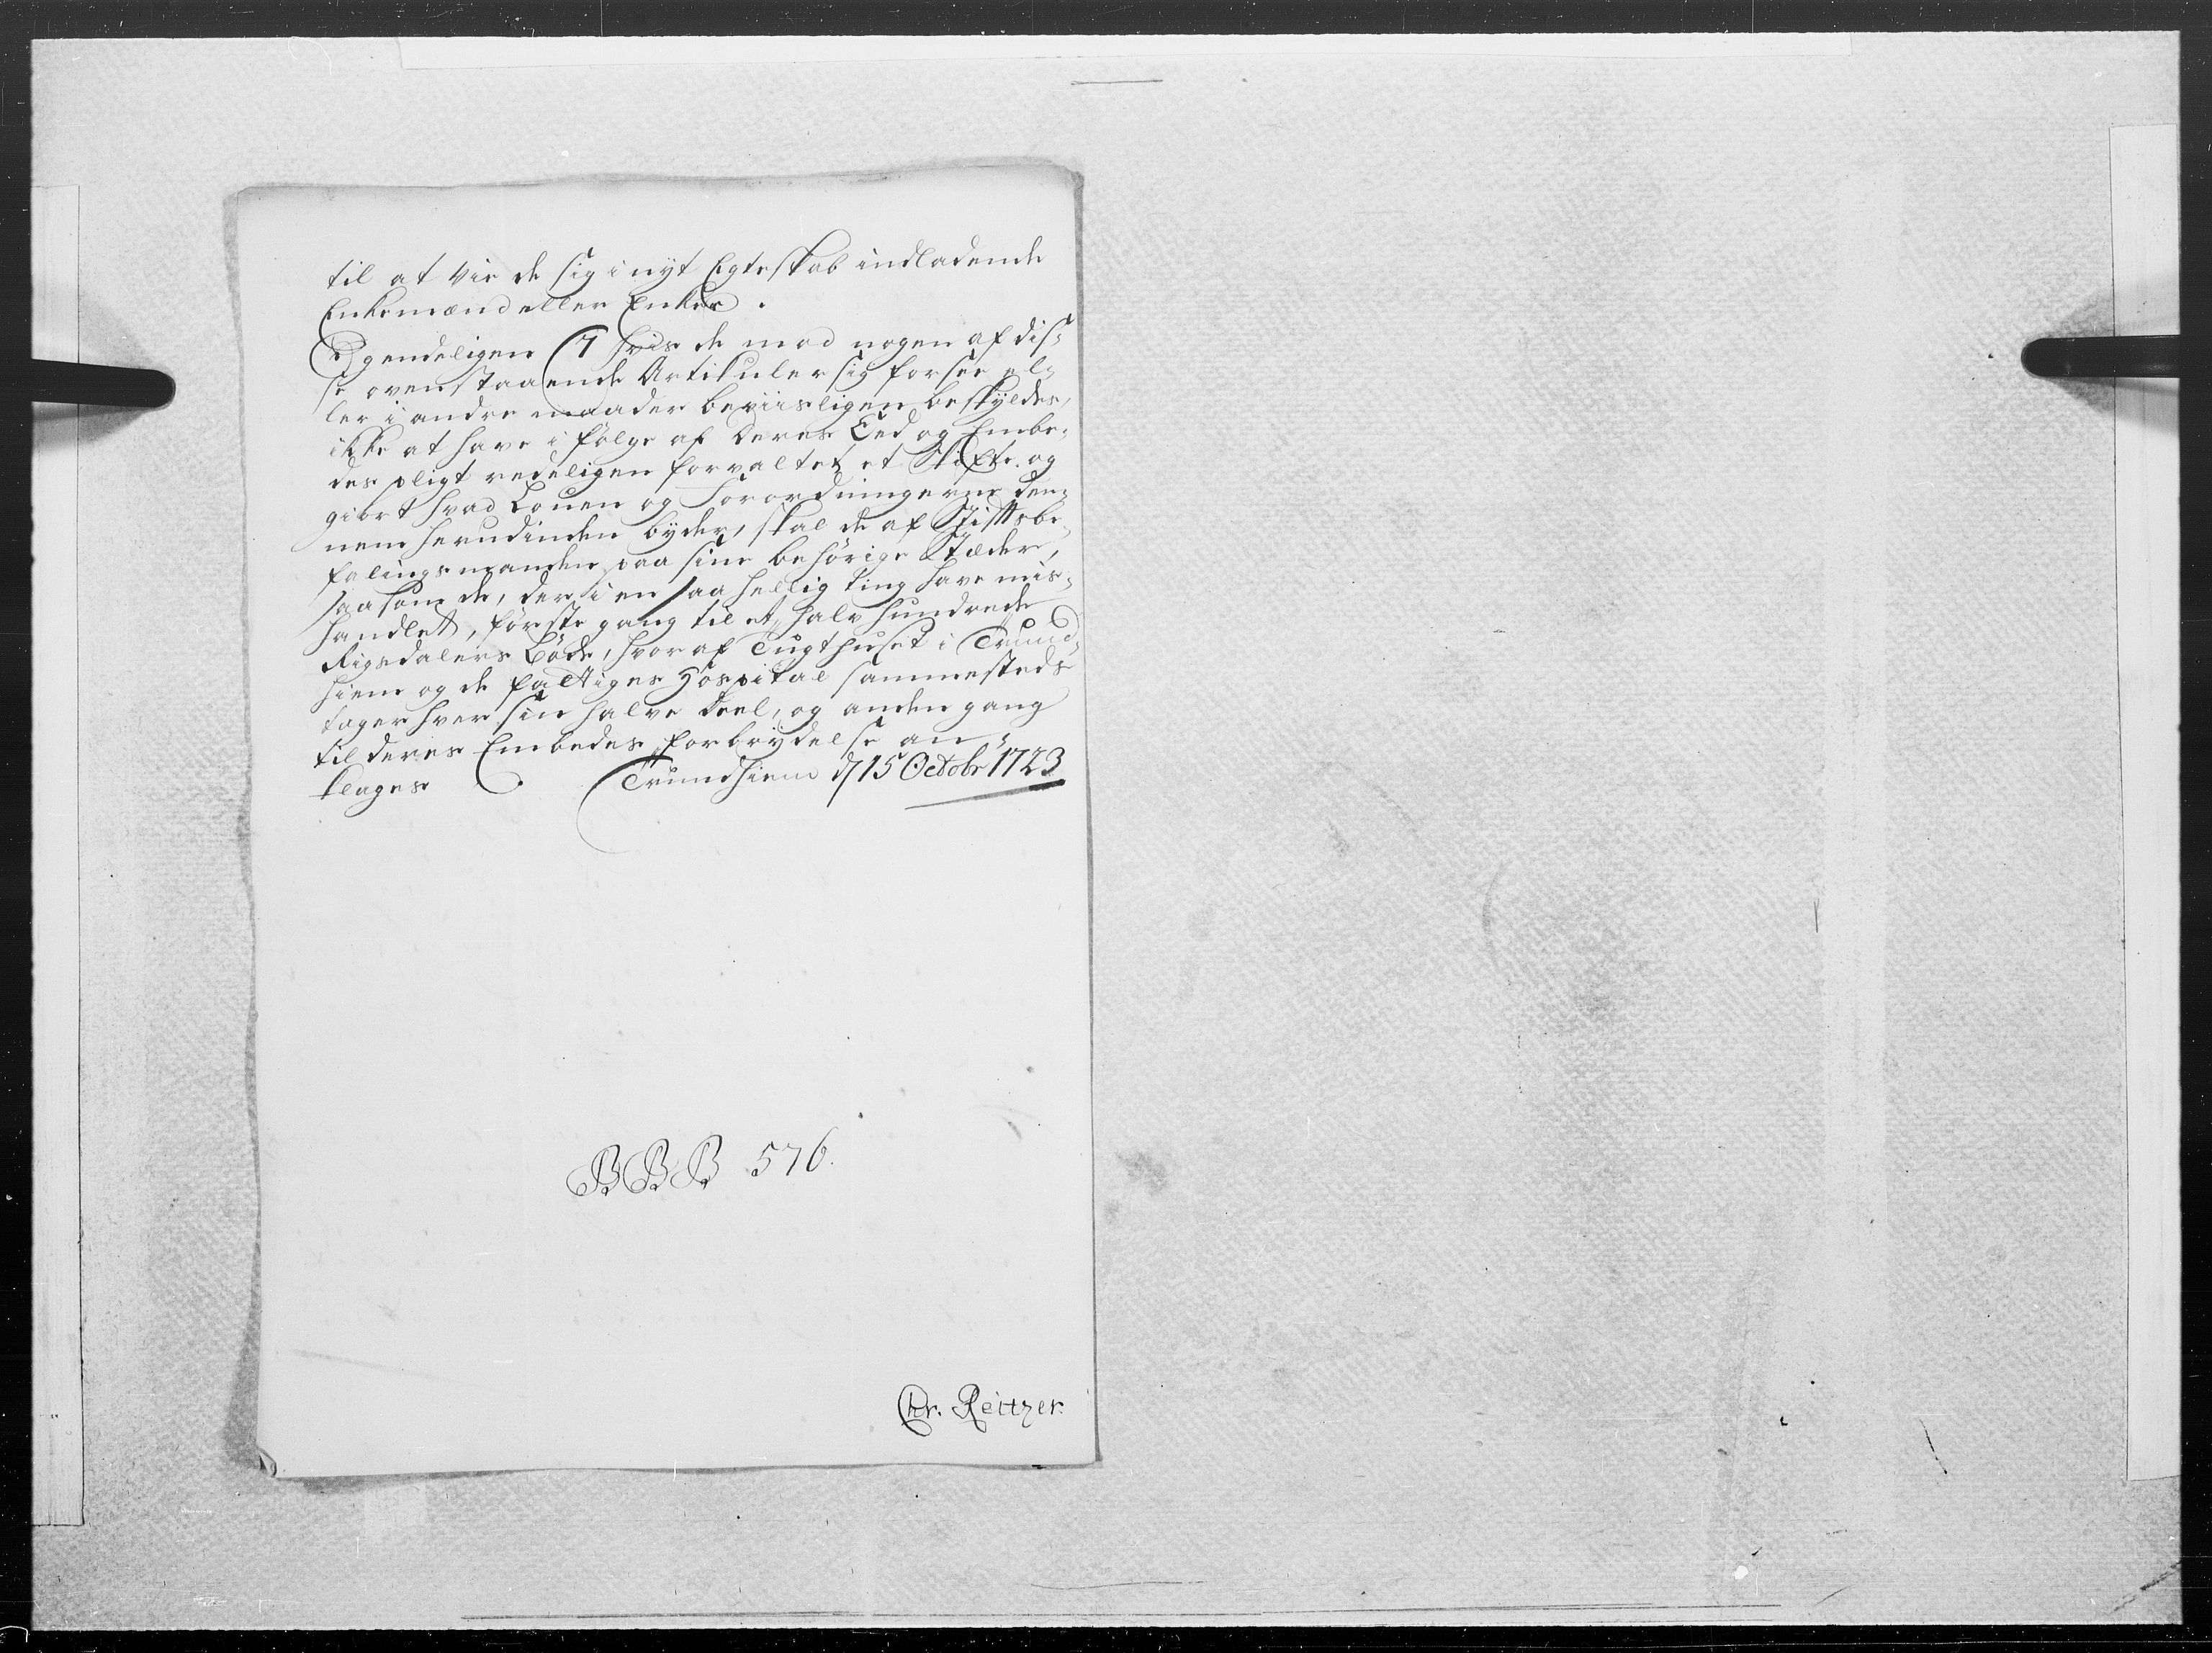 til at vie de sig i nyt Egteskab indladende
Enkemænd eller Enker.
Egendeligen (7 hvis de mod nogen af dis-
se ovenstaaende Artikuler sig forsee el-
ler i andre maader beviisligen beskyldes,
ikke at have i følge af deres Eed og Embe-
des pligt redeligen forvaltet et Skifte og
giort hvad Loven og Forordningerne den-
nem herudinden byder, skal de af Stiftsbe-
falingsmanden paa sine behørige Stæder,
saasom de, der i en saa hellig ting have mis-
handlet, første gang til et halv hundrede
Rigsdalers Bøde, hvoraf Tugthuset i Trund-
hiem og de fattiges Hospital sammesteds
tager hver sin halve Deel, og anden gang
til deres Embedes forbrydelse an-
klages. Trundhiem d 15 Octobr 1723
BBB 576.
Chr. Reitzer.